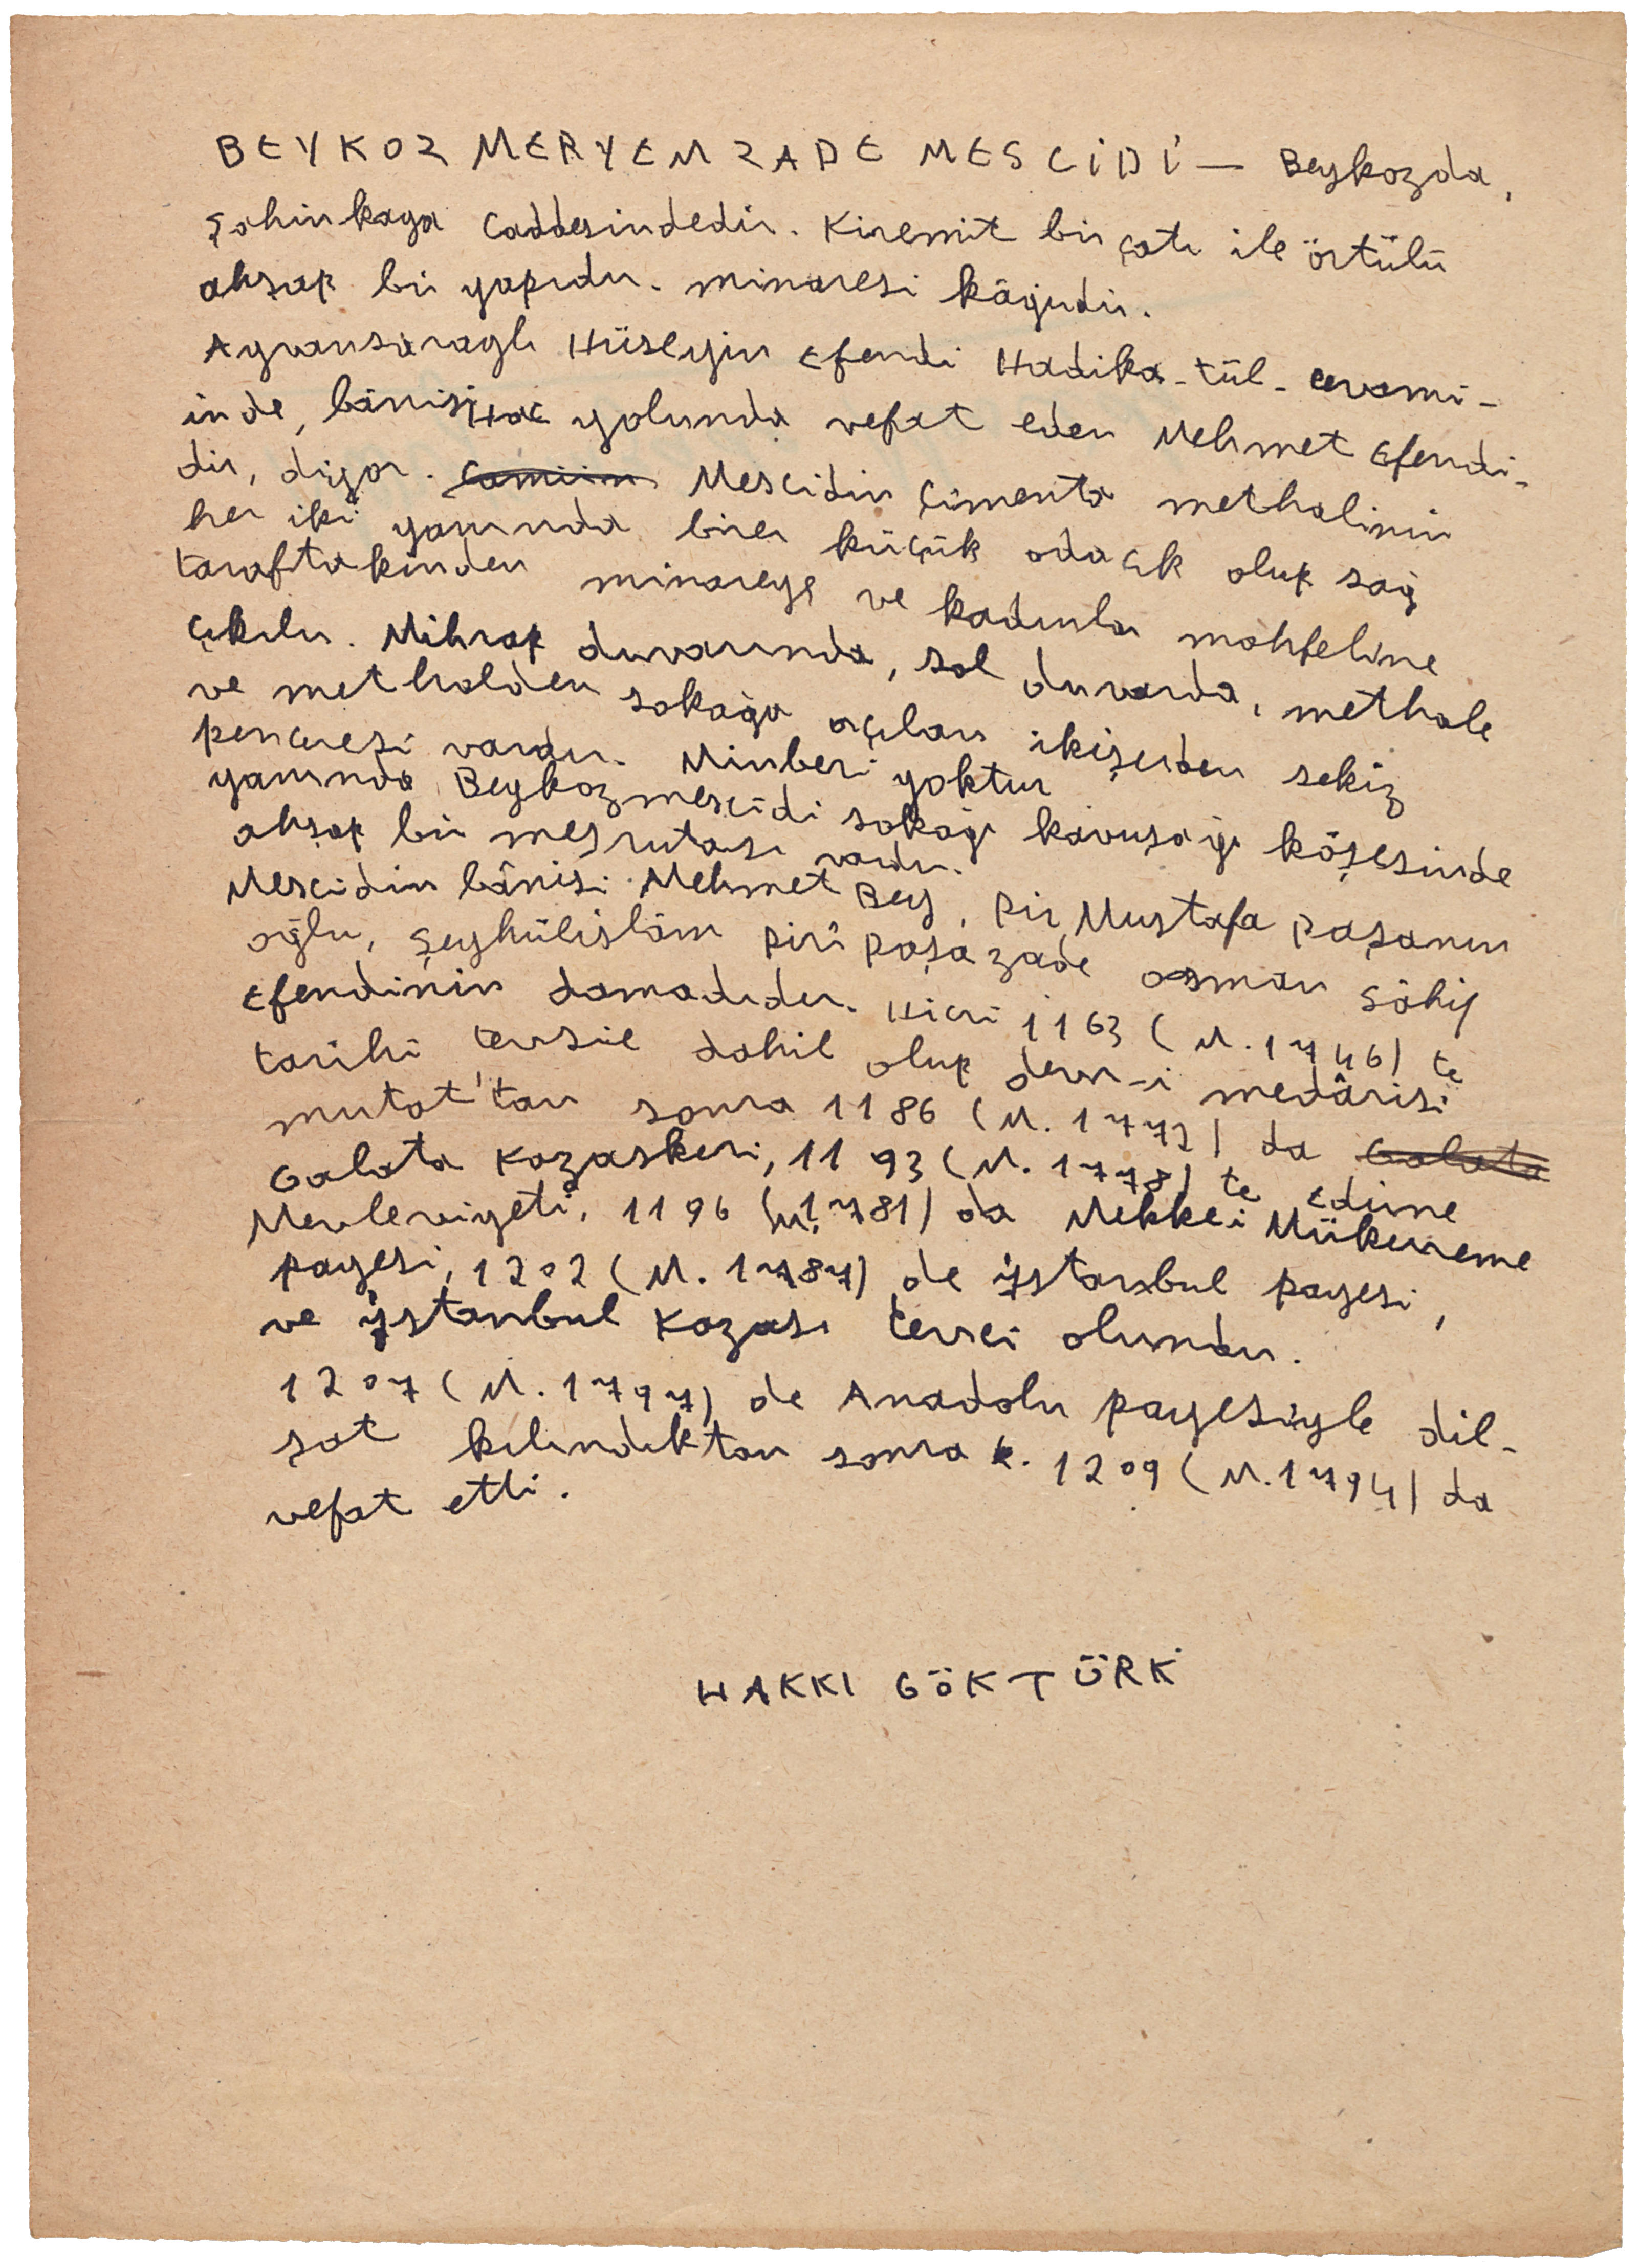 BEYKOZ MERYEMZADE MESCİDİ — Beykozda,
Şahinkaya Caddesindedir. Kiremit bir çatı ile örtülü
ahşap bir yapıdır. minaresi kâgirdir.
Ayvansaraylı Hüseyin Efendi Hadika-tül-cevami-
inde, bânisi Hac yolunda vefat eden Mehmet Efendi-
dir, diyor. ~~Camiin~~ Mescidin çimento methalinin
her iki yanında birer küçük odacık olup sağ
taraftakinden minareye ve kadınlar mahfeline
çıkılır. Mihrap duvarında, sol duvarda, methale
ve methalden sokağa açılan ikişerden sekiz
penceresi vardır. Minberi yoktur
yanında Beykozmescidi sokağı kavuşağı köşesinde
ahşap bir meşrutası vardır.
Mescidin bânisi Mehmet Bey, Pir Mustafa Paşanın
oğlu, Şeyhülislâm Pirî Paşazade Osman Sâhip
Efendinin damadıdır. Hicri 1163 (M. 1746) te
tariki tersiie dahil olup devr-i medârisi
mutat'tan sonra 1186 (M. 1772) da ~~Galata~~
Galata Kazaskeri, 1193 (M. 1778) te Edirne
Mevleviyeti, 1196 (M. 1781) da Mekkei Mükerreme
payesi, 1202 (M. 1787) de İstanbul payesi,
ve İstanbul Kazası tevci olundu.
1207 (M. 1797) de Anadolu payesiyle dil-
şat kılındıktan sonra 1209 (M. 1794) da
vefat etti.
HAKKI GÖKTÜRK